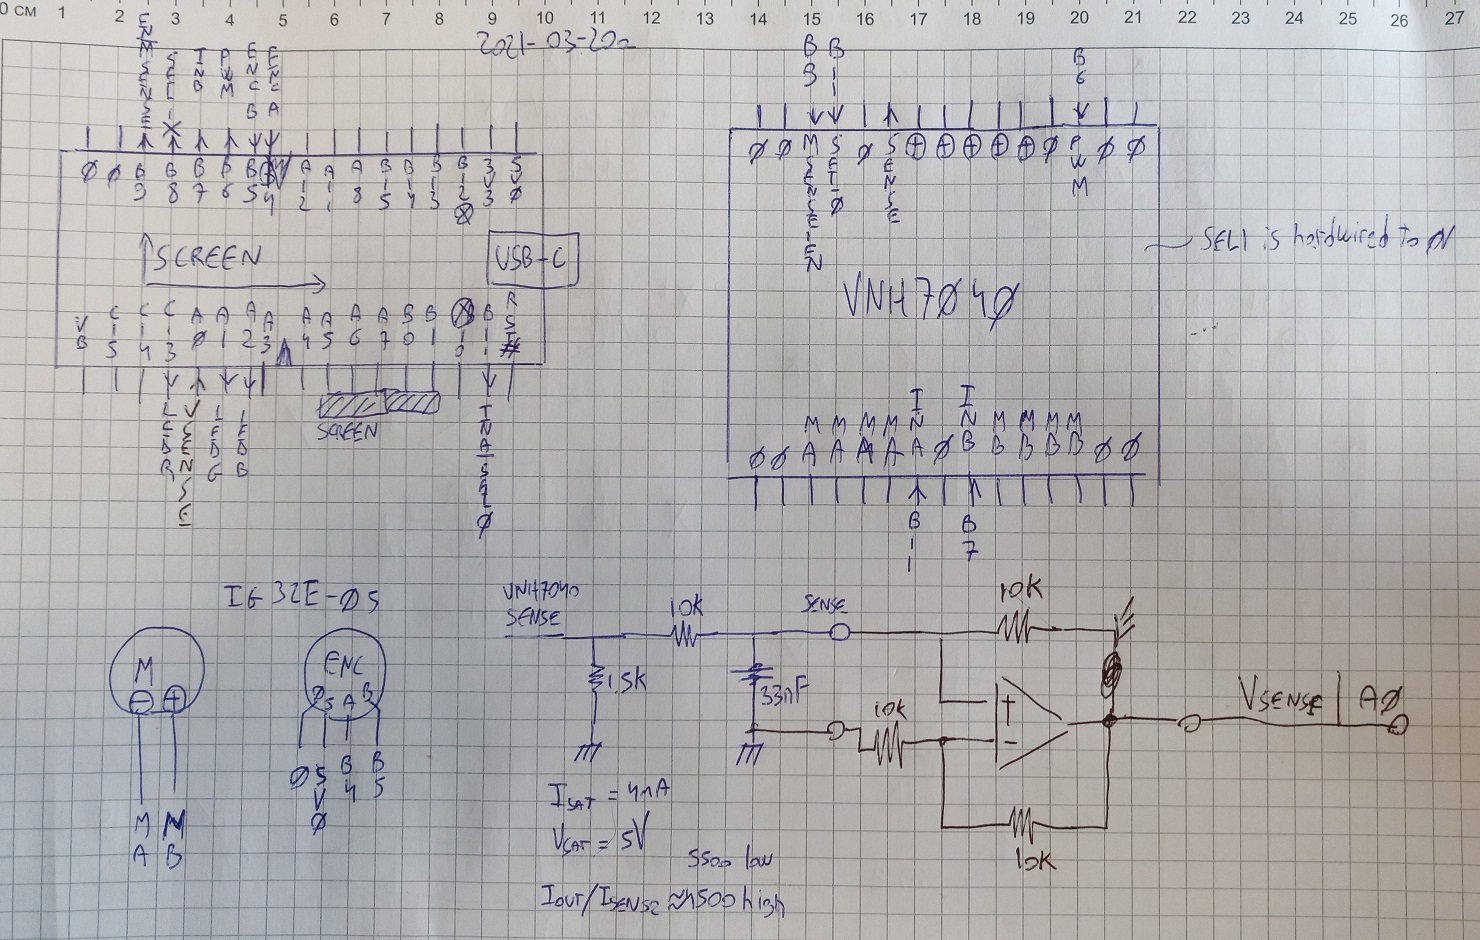 0 СМ 1 2 3 4 5 6 7 8 9 10 11 12 13 14 15 16 17 18 19 20 21 22 23 24 25 26 27
2021-03-20
INB
PWM
ENCB
ENCA
Ø Ø B9 B8 B7 B6 B5 B4 A12 A11 A8 B15 B14 B13 B12 3V3 5VØ
SCREEN
USB-C
VB C15 C14 C13 AØ A1 A2 A3 A4 A5 A6 A7 BØ B1 B10 B11 RST#
LEDR
VSENSE
LEDG
LEDB
SCREEN
INA/SELØ
B9
B11
B6
Ø Ø MSENSE-EN SELØ Ø SENSE + + + + + Ø PWM Ø Ø
SEL1 is hardwired to ØV
VNH7Ø4Ø
Ø Ø MA MA MA MA INA Ø INB MB MB MB MB Ø Ø
B11
B7
IG32E-Ø5
M
- +
MA
MB
ENC
Ø 5 A B
Ø
5VØ
B4
B5
VNH7040
SENSE
10K
SENSE
10K
1.5K
33nF
10K
+
-
VSENSE | AØ
10K
ISAT = 4mA
VSAT = 5V
5500 low
IOUT/ISENSE ≈ 1500 high